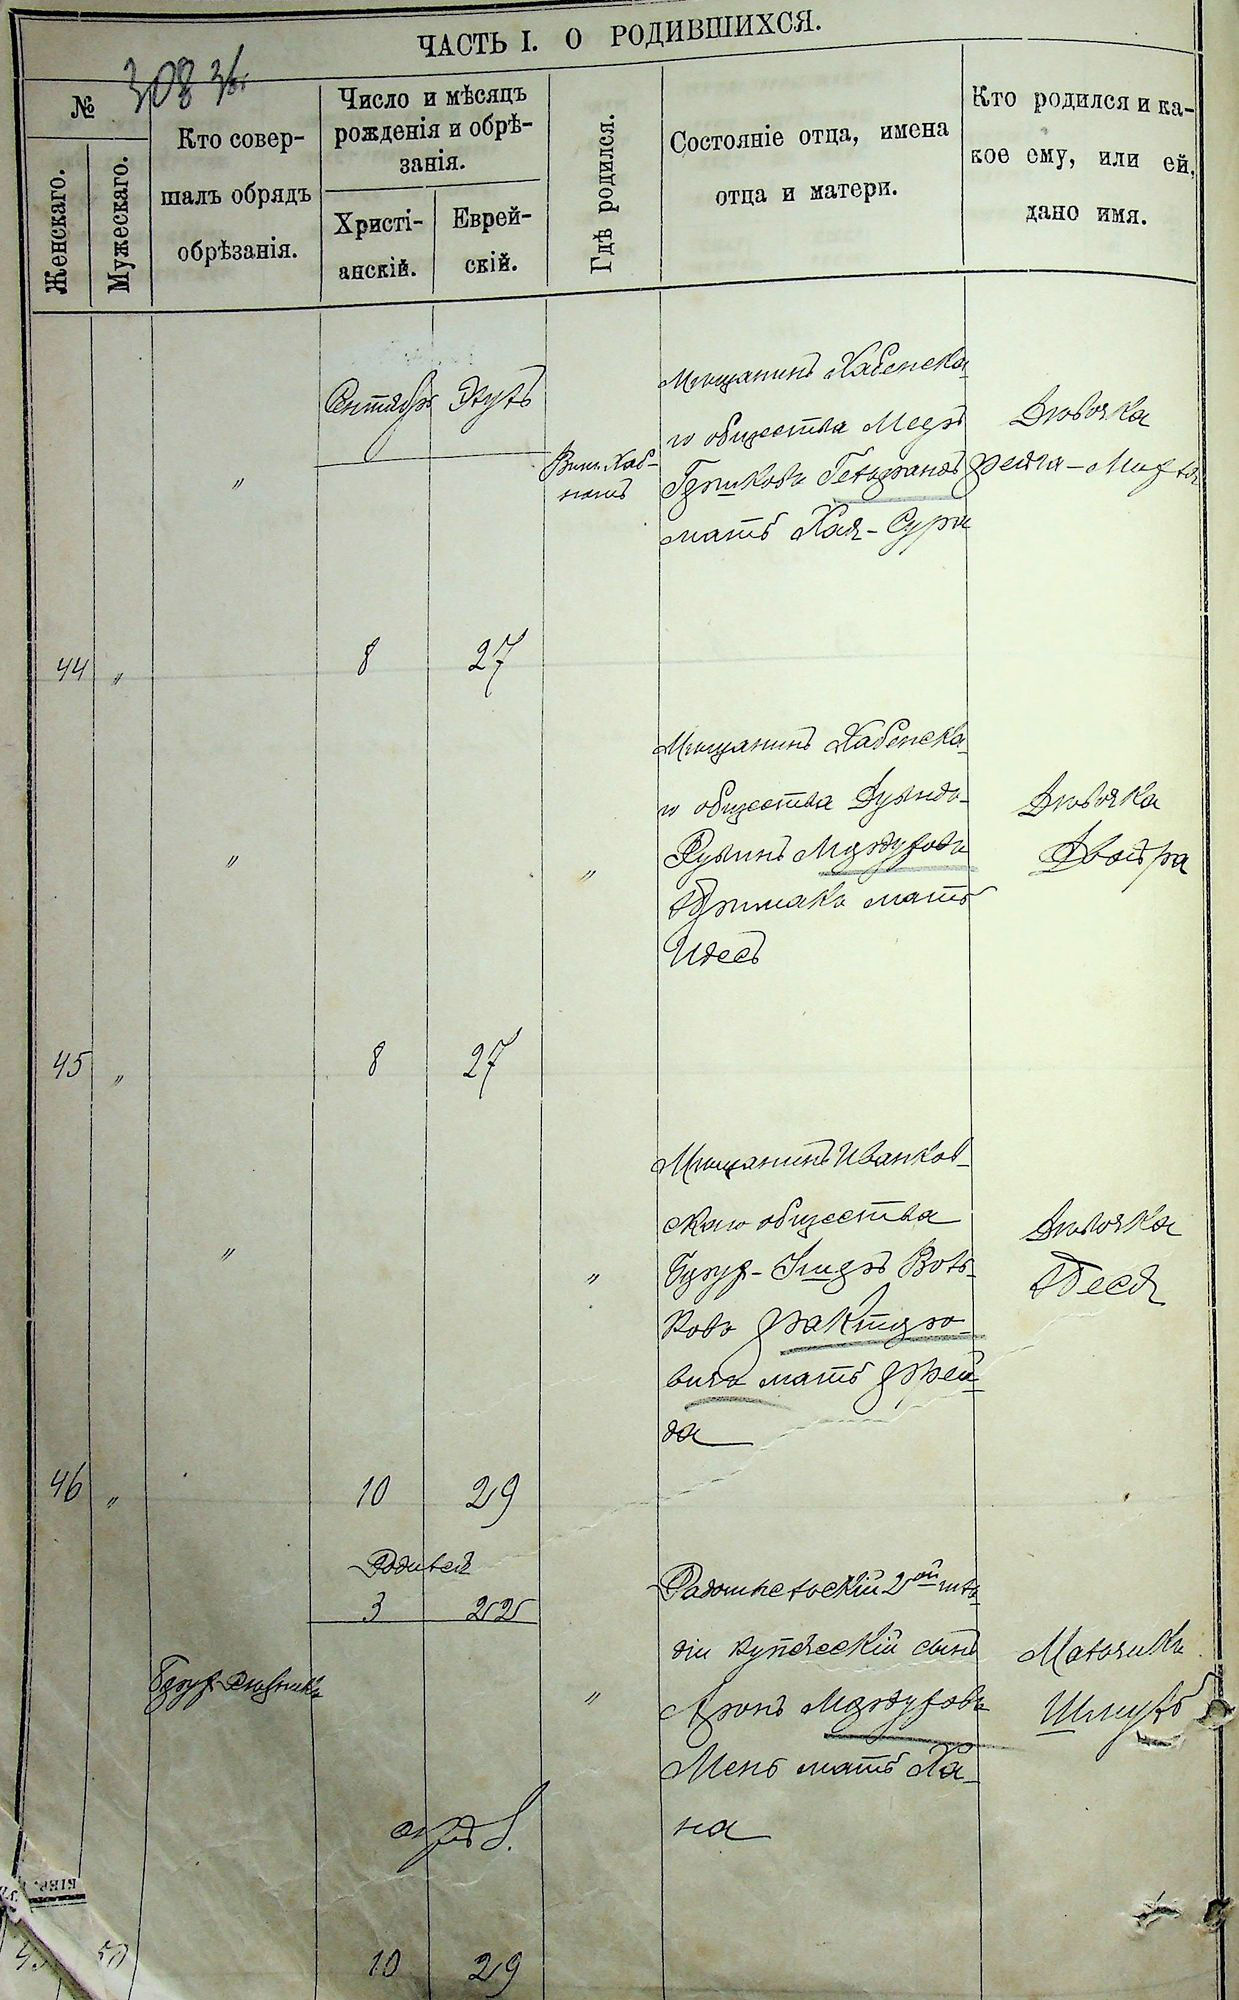 ЧАСТЬ I. О РОДИВШИХСЯ.
308
№
Женскаго.
Мужескаго.
Кто совер-
шалъ обрядъ
обрѣзанія.
Число и мѣсяцъ
рожденія и обрѣ-
занія.
Христі-
анскій.
Еврей-
скій.
Гдѣ родился.
Состояніе отца, имена
отца и матери.
Кто родился и ка-
кое ему, или ей,
дано имя.
Сентябрь
Элулъ
Мѣщанинъ Хабенска-
го общества Мееръ
Гершковъ
мать Хая-Сура
Дѣвочка
Фейга-
"
44 " 8 27
Мѣщанинъ Хабенска-
го общества
Мордуховъ
мать
Идесъ
Дѣвочка
Двойра
"
"
45 " 8 27
Мѣщанинъ Иванков-
скаго общества
Воль-
ковъ
мать Фрей-
да
Дѣвочка
Бася
"
"
46 " 10 29
Родился
3 22
Радомысльскій 2ой гиль-
діи купеческій сынъ
Аронъ Мордуховъ
мать Ха-
на
Мальчикъ
Шмуль
"
обрѣз.
50 10 29